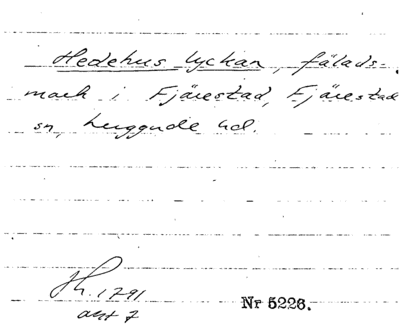 Hedehus lyckan, fälads-
mark i Fjärestad, Fjärestad
sn, Luggude hd.
Sk. 1791
akt 7
Nr 5226.